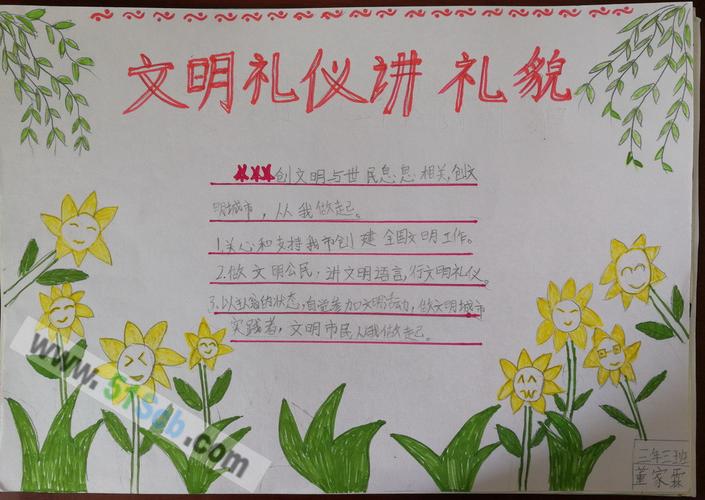 文明礼仪讲礼貌
创文明与世民息息相关,创文
明城市,从我做起。
1.关心和支持我市创建全国文明工作。
2.做文明公民,讲文明语言,行文明礼仪。
3.以积极的状态,自觉参加文明活动,做文明城市
实践者,文明市民从我做起。
二年三班
董家霖
www.51Seb.com